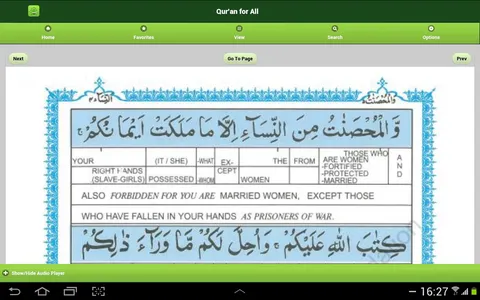 Qur'an for All
Home Favorites View Search Options
Next Go To Page Prev
وَالْمُحْصَنٰتُ مِنَ النِّسَآءِ اِلَّا مَا مَلَكَتْ اَيْمَانُكُمْ
YOUR (IT / SHE) -WHAT EX- THE FROM THOSE WHO A
RIGHT HANDS -WHOM CEPT WOMEN ARE WOMEN N
(SLAVE-GIRLS) POSSESSED -FORTIFIED D
-PROTECTED
-MARRIED
ALSO FORBIDDEN FOR YOU ARE MARRIED WOMEN, EXCEPT THOSE
WHO HAVE FALLEN IN YOUR HANDS AS PRISONERS OF WAR.
كِتٰبَ اللّٰهِ عَلَيْكُمْ وَاُحِلَّ لَكُمْ مَّا وَرَآءَ ذٰلِكُمْ
Show/Hide Audio Player
16:27